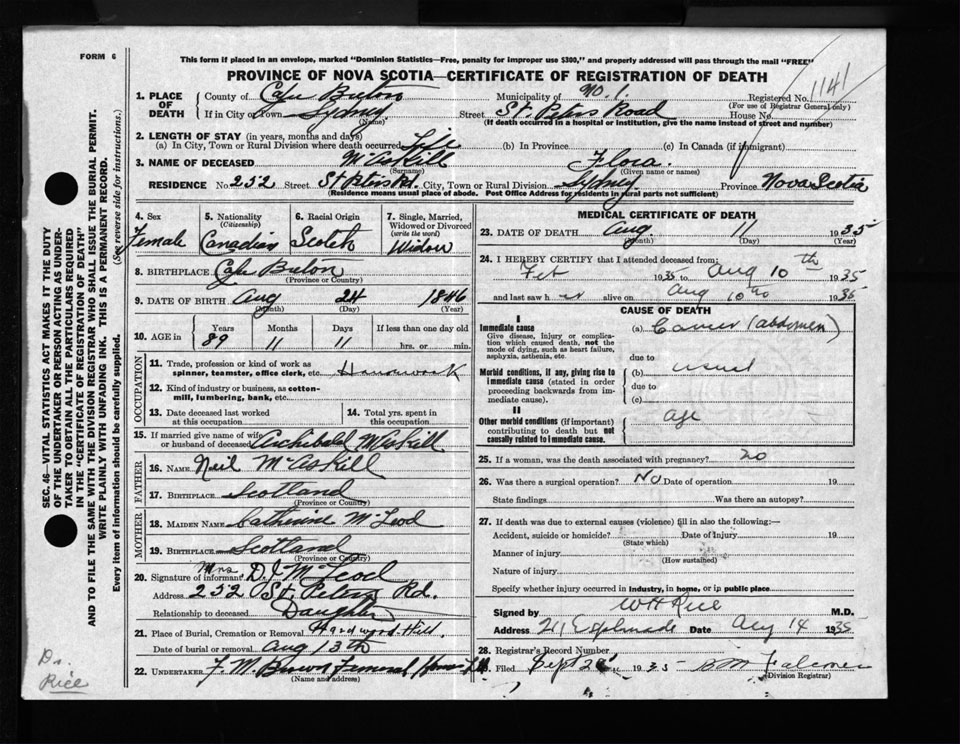 FORM 6
This form if placed in an envelope, marked "Dominion Statistics—Free, penalty for improper use $300," and properly addressed will pass through the mail "FREE"
PROVINCE OF NOVA SCOTIA—CERTIFICATE OF REGISTRATION OF DEATH
1141
1. PLACE OF DEATH
County of Cape Breton Municipality of No. 1. Registered No.
(For use of Registrar General only)
If in City or Town Sydney Street St. Peters Road House No.
(Name) (If death occurred in a hospital or institution, give the name instead of street and number)
2. LENGTH OF STAY (in years, months and days)
(a) In City, Town or Rural Division where death occurred Life (b) In Province (c) In Canada (if immigrant)
3. NAME OF DECEASED McAskill Flora.
(Surname) (Given name or names)
RESIDENCE No. 252 Street St Peters Rd. City, Town or Rural Division Sydney. Province Nova Scotia
(Residence means usual place of abode. Post Office Address for residents in rural parts not sufficient)
4. Sex
Female
5. Nationality
(Citizenship)
Canadian
6. Racial Origin
Scotch
7. Single, Married, Widowed or Divorced
(write the word)
Widow
8. BIRTHPLACE Cape Breton
(Province or Country)
9. DATE OF BIRTH Aug 24 1846
(Month) (Day) (Year)
10. AGE in Years Months Days If less than one day old
89 11 11 hrs. or min.
OCCUPATION
11. Trade, profession or kind of work as
spinner, teamster, office clerk, etc.
12. Kind of industry or business, as cotton-
mill, lumbering, bank, etc.
13. Date deceased last worked
at this occupation
14. Total yrs. spent in
this occupation
15. If married give name of wife
or husband of deceased Archibald McAskill
FATHER
16. NAME Neil McAskill
17. BIRTHPLACE Scotland
(Province or Country)
MOTHER
18. MAIDEN NAME Catherine McLeod
19. BIRTHPLACE Scotland
(Province or Country)
20. Signature of informant Mrs D. J McLeod
Address 252 St. Peters Rd.
Relationship to deceased Daughter
21. Place of Burial, Cremation or Removal Hardwood Hill.
Date of burial or removal Aug 13th
22. UNDERTAKER F. M. Brown Funeral Home
(Name and Address)
MEDICAL CERTIFICATE OF DEATH
23. DATE OF DEATH Aug 11 1935
(Month) (Day) (Year)
24. I HEREBY CERTIFY that I attended deceased from:
Feb 1935 to Aug 10th 1935
and last saw her alive on Aug 10th 1935
CAUSE OF DEATH
I
Immediate cause (a) Cancer (abdomen)
Give disease, injury or complica-
tion which caused death, not the
mode of dying, such as heart failure,
asphyxia, asthenia, etc.
due to
Morbid conditions, if any, giving rise to
immediate cause (stated in order
proceeding backwards from im-
mediate cause).
(b) usual
due to
(c)
II
Other morbid conditions (if important)
contributing to death but not
causally related to immediate cause.
age
25. If a woman, was the death associated with pregnancy? no
26. Was there a surgical operation? No Date of operation 19
State findings Was there an autopsy?
27. If death was due to external causes (violence) fill in also the following:—
Accident, suicide or homicide? Date of Injury 19
(State which)
Manner of injury
(How sustained)
Nature of injury
Specify whether injury occurred in industry, in home, or in public place
Signed by W H Rice M.D.
Address 211 Esplanade Date Aug 14 1935
28. Registrar's Record Number
Filed Sept 1935
(Division Registrar)
SEC. 46—VITAL STATISTICS ACT MAKES IT THE DUTY
OF THE UNDERTAKER OR PERSON ACTING AS UNDER-
TAKER TO OBTAIN ALL THE PARTICULARS REQUIRED
IN THE "CERTIFICATE OF REGISTRATION OF DEATH"
AND TO FILE THE SAME WITH THE DIVISION REGISTRAR WHO SHALL ISSUE THE BURIAL PERMIT.
WRITE PLAINLY WITH UNFADING INK. THIS IS A PERMANENT RECORD.
Every item of information should be carefully supplied. (See reverse side for instructions.)
Dr.
Rice